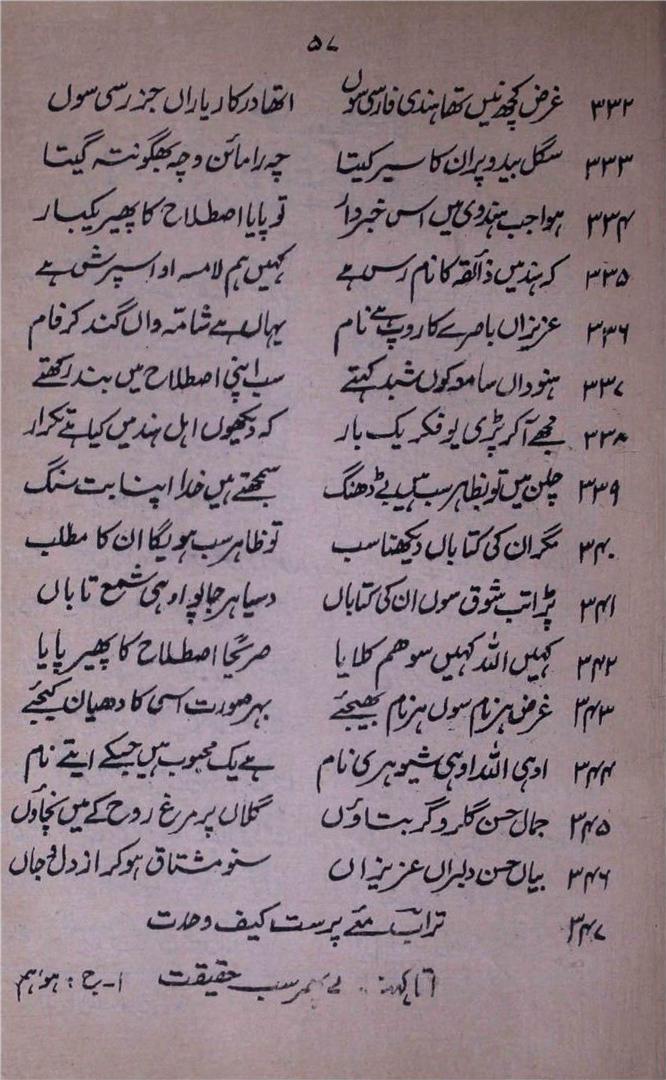 ۵۷
۳۳۲ غرض کچھ نیں تھا ہندی فارسی سوں اتھا درکار یاراں جز رسی سوں
۳۳۳ سگل بید و پران کا سیر کیتا چہ رامائن و چہ بھگونتہ گیتا
۳۳۴ ہوا جب ہندوی میں اس خبردار تو پایا اصطلاح کا پھیر یکبار
۳۳۵ کہ ہند میں ذائقہ کا نام رس ہے کہیں ہم لامسہ او اسپرش ہے
۳۳۶ عزیزاں باصرے کا روپ ہے نام یہاں ہے شامّہ واں گند کر فام
۳۳۷ ہنوداں سامعہ کوں شبد کہتے سب اپنی اصطلاح میں بند رکھتے
۳۳۸ مجھے آ کر پڑی یو فکر یک بار کہ دیکھوں اہل ہند میں کیا ہے تکرار
۳۳۹ چلن میں تو بظاہر سب ہیں بے ڈھنگ سمجھتے ہیں خدا اپنا بت سنگ
۳۴۰ مگر ان کی کتاباں دیکھنا سب تو ظاہر سب ہویگا ان کا مطلب
۳۴۱ پڑا تب شوق سوں ان کی کتاباں دسیا ہر جا پو او ہی شمع تاباں
۳۴۲ کہیں اللہ کہیں سوھم کلایا صریحا اصطلاح کا پھیر پایا
۳۴۳ غرض ہر نام سوں ہر نام بھیجئے بہر صورت اسی کا دھیان کیجئے
۳۴۴ اوہی اللہ اوہی شیو ہری نام ہے یک محبوب ہیں جسکے ایتے نام
۳۴۵ جمال حسن گلرو گر بتاؤں گلاں پر مرغ روح کے میں نچاؤں
۳۴۶ بیاں حسن دلبراں عزیزاں سنو مشتاق ہو کر از دل و جاں
۳۴۷ ترابؔ مئے پرست کیف وحدت
سب حقیقت ا۔ ح : ہو ہم